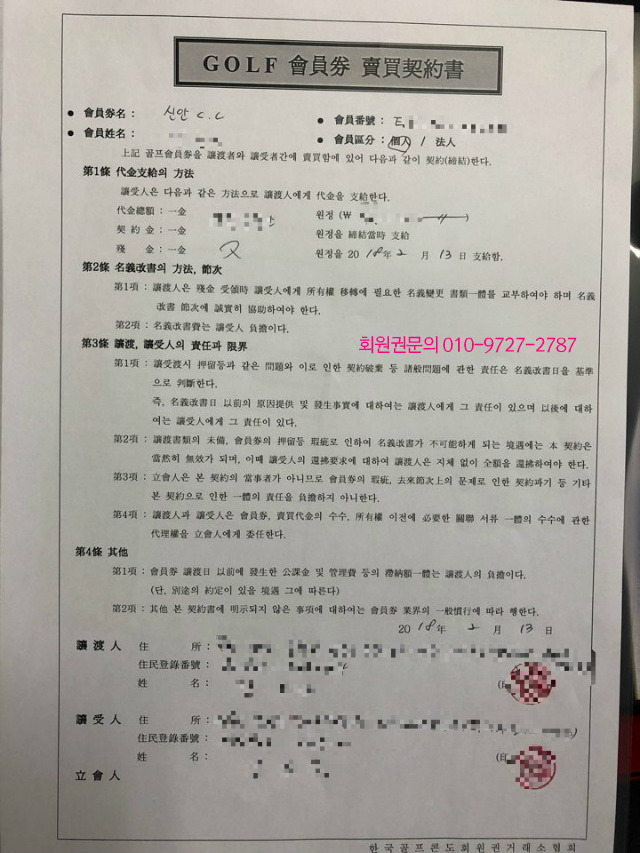 GOLF 會員券 賣買契約書
● 會員券名 : 신안 C.C
● 會員番號 : E
● 會員姓名 :
● 會員區分 : 個人 / 法人
上記 골프會員券을 讓渡者와 讓受者간에 賣買함에 있어 다음과 같이 契約(締結)한다.
第1條 代金支給의 方法
讓受人은 다음과 같은 方法으로 讓渡人에게 代金을 支給한다.
代金總額 : 一金 원정 (₩
契 約 金 : 一金 원정을 締結當時 支給
殘 金 : 一金 원정을 2018年 2 月 13 日 支給함.
第2條 名義改書의 方法, 節次
第1項 : 讓渡人은 殘金 受領時 讓受人에게 所有權 移轉에 必要한 名義變更 書類一體를 교부하여야 하며 名義
改書 節次에 誠實히 協助하여야 한다.
第2項 : 名義改書費는 讓受人 負擔이다.
회원권문의 010-9727-2787
第3條 讓渡, 讓受人의 責任과 限界
第1項 : 讓受渡시 押留등과 같은 問題와 이로 인한 契約破棄 등 諸般問題에 관한 責任은 名義改書日을 基準
으로 判斷한다.
즉, 名義改書日 以前의 原因提供 및 發生事實에 대하여는 讓渡人에게 그 責任이 있으며 以後에 대하
여는 讓受人에게 그 責任이 있다.
第2項 : 讓渡書類의 未備, 會員券의 押留등 瑕疵로 인하여 名義改書가 不可能하게 되는 境遇에는 本 契約은
當然히 無效가 되며, 이때 讓受人의 還拂要求에 대하여 讓渡人은 지체 없이 全額을 還拂하여야 한다.
第3項 : 立會人은 본 契約의 當事者가 아니므로 會員券의 瑕疵, 去來節次上의 문제로 인한 契約파기 등 기타
본 契約으로 인한 一體의 責任을 負擔하지 아니한다.
第4項 : 讓渡人과 讓受人은 會員券, 賣買代金의 수수, 所有權 이전에 必要한 關聯 서류 一體의 수수에 관한
代理權을 立會人에게 委任한다.
第4條 其他
第1項 : 會員券 讓渡日 以前에 發生한 公課金 및 管理費 등의 滯納額一體는 讓渡人의 負擔이다.
(단, 別途의 約定이 있을 境遇 그에 따른다)
第2項 : 其他 본 契約書에 明示되지 않은 事項에 대하여는 會員券 業界의 一般慣行에 따라 행한다.
2018年 2 月 13 日
讓 渡 人 住 所 :
住民登錄番號 :
姓 名 : (印
讓 受 人 住 所 :
住民登錄番號 :
姓 名 : (印
立 會 人
한국골프콘도회원권거래소협회